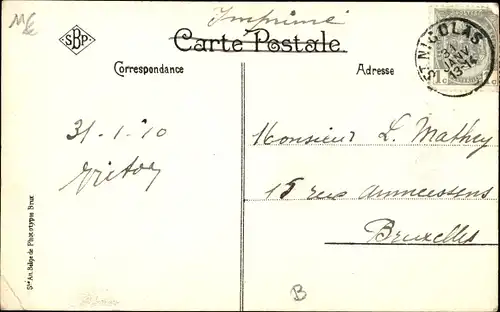 Imprimé
SBP
Carte Postale.
ST NICOLAS
31
JANV
13-14
Correspondance
Adresse
31-1-10
Victor
Monsieur L. Mathey
15 rue Anneessens
Bruxelles
Sté An. Belge de Phototypie Brux
B